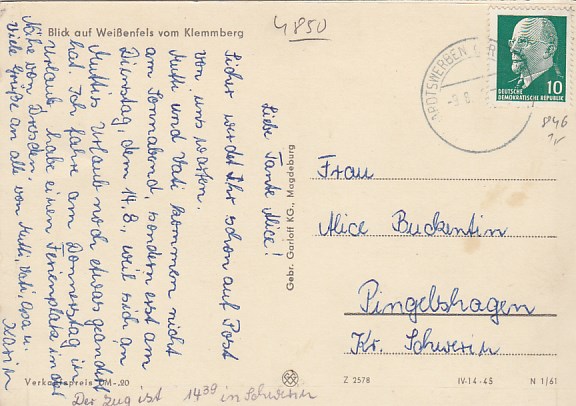 Blick auf Weißenfels vom Klemmberg
4850
DEUTSCHE
DEMOKRATISCHE REPUBLIK
10
Liebe Tante Alice!
Sicher werdet Ihr schon auf Post
von uns warten.
Mutti und Vati kommen nicht
am Sonnabend, sondern erst am
Dienstag, dem 14.8., weil sich an
Muttis Urlaub noch etwas geändert
hat. Ich fahre am Donnerstag in
Urlaub, habe einen Ferienplatz in der
Nähe von Dresden.
Viele Grüße an alle von Mutti, Vati, Opa u.
Karin
Der Zug ist 14 39 in Schwerin
Gebr. Garloff KG., Magdeburg
Frau
Alice Buckentin
Pingelshagen
Kr. Schwerin
Verkaufspreis DM -.20
Z 2578
IV-14-45
N 1/61